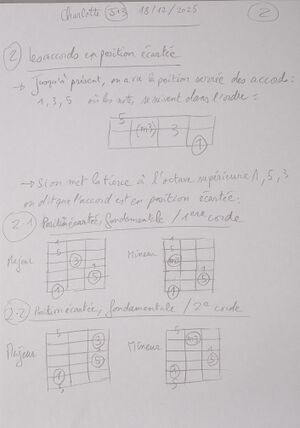 Charlotte 5+3 18/12/2025 2
2 les accords en position écartée
→ Jusqu'à présent, on a vu la position serrée des accords :
1, 3, 5 où les notes se suivent dans l'ordre :
5 (m3) 3
1
→ Si on met la tierce à l'octave supérieure 1, 5, 3
on dit que l'accord est en position écartée.
2.1 Position écartée, fondamentale / 1ère corde
Majeur Mineur
1 1
5 5
3 m3
1 1
5 5
1 1
2.2 Position écartée, fondamentale / 2e corde
Majeur Mineur
5 5
3 m3
5 5
1 1
5 5